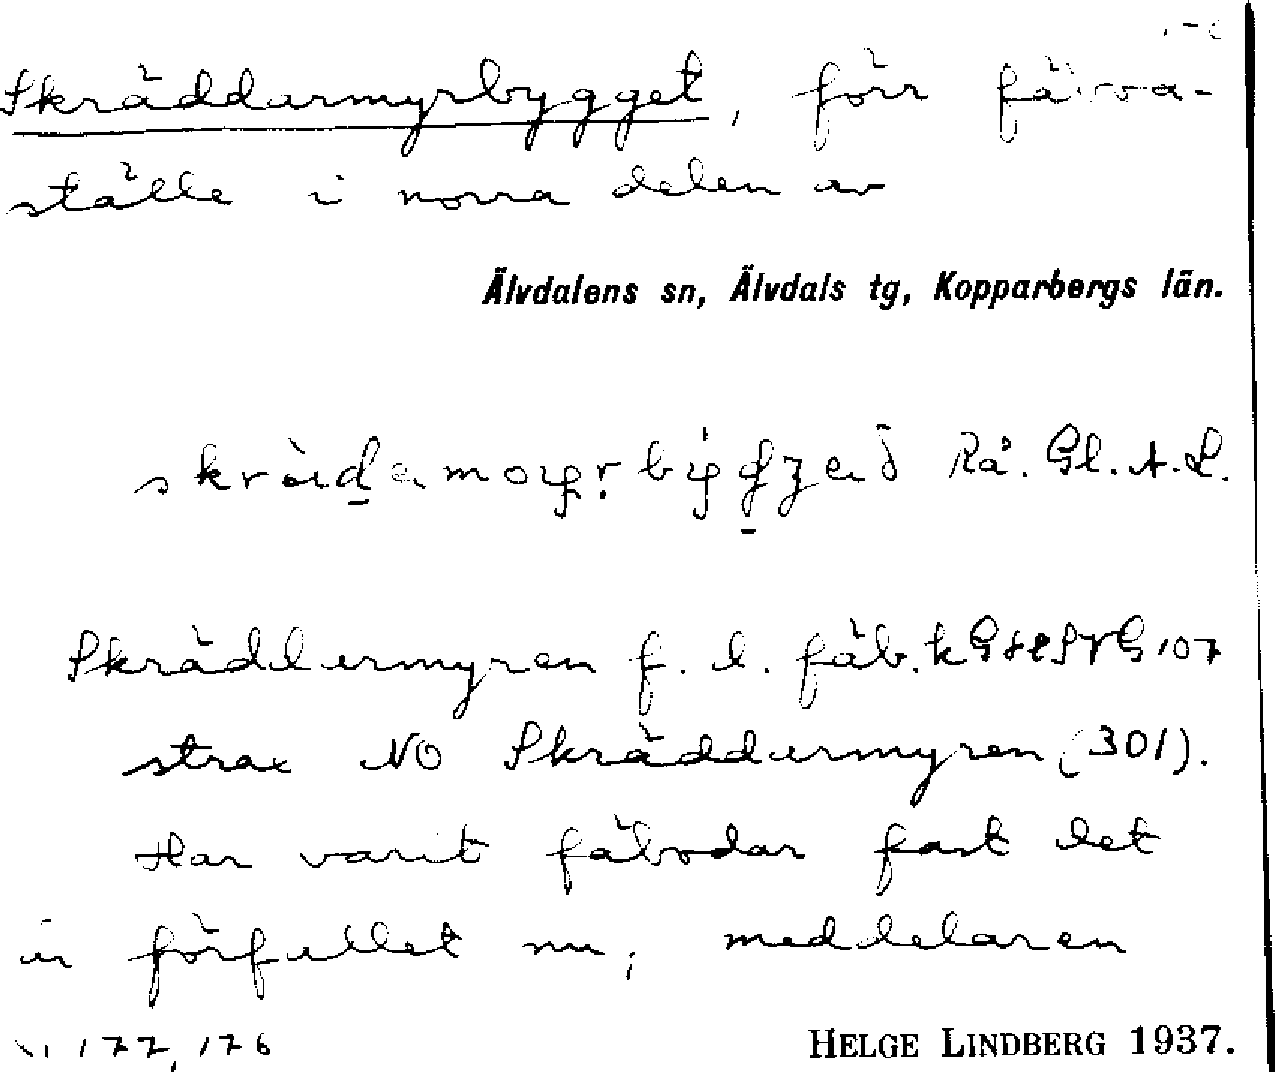 Skräddarmyrbygget, förr fäbo-
ställe i norra delen av
Älvdalens sn, Älvdals tg, Kopparbergs län.
Rå. Gl. A. L.
Skräddarmyren f. d. fäb. k G 107
strax NO Skräddarmyren (301).
Har varit fäbodar fast det
är förfallet nu, meddelaren
177, 176
HELGE LINDBERG 1937.